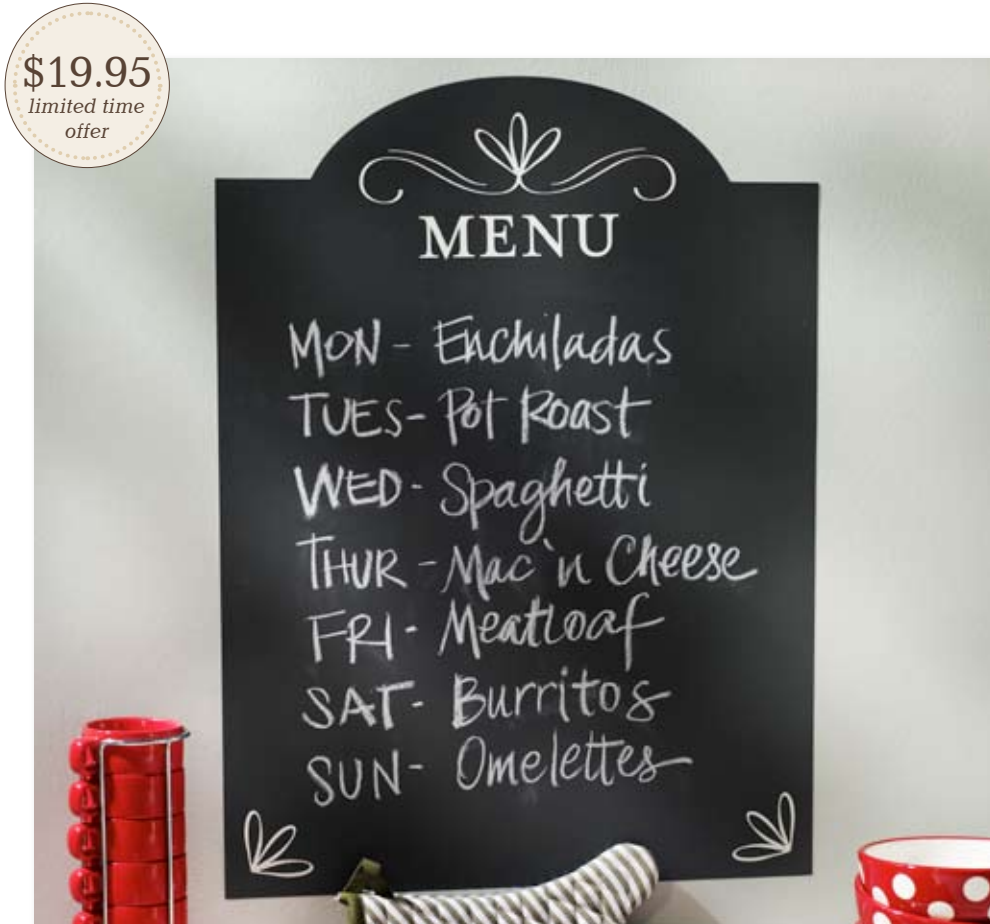 $19.95
limited time
offer
MENU
MON - Enchiladas
TUES- Pot Roast
WED - Spaghetti
THUR - Mac 'n Cheese
FRI - Meatloaf
SAT- Burritos
SUN- Omelettes